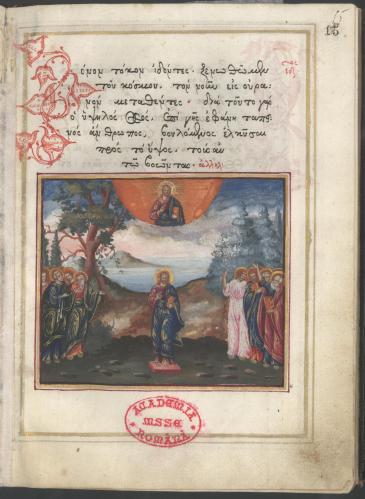 15
Ξένον τόκον ἰδόντες · ξενωθῶμεν
τοῦ κόσμου, τὸν νοῦν εἰς οὐρα
νὸν μεταθέντες · διὰ τοῦτο γὰρ
ὁ ὑψηλὸς Θς, ἐπὶ γῆς ἐφάνη ταπει
νὸς ἄνθρωπος, βουλόμενος ἑλκῦσαι
πρὸς τὸ ὕψος · τοὺς αὐ
τῷ βοῶντας · ἀλληλ
ACADEMIA
MSSE
ROMÂNĂ